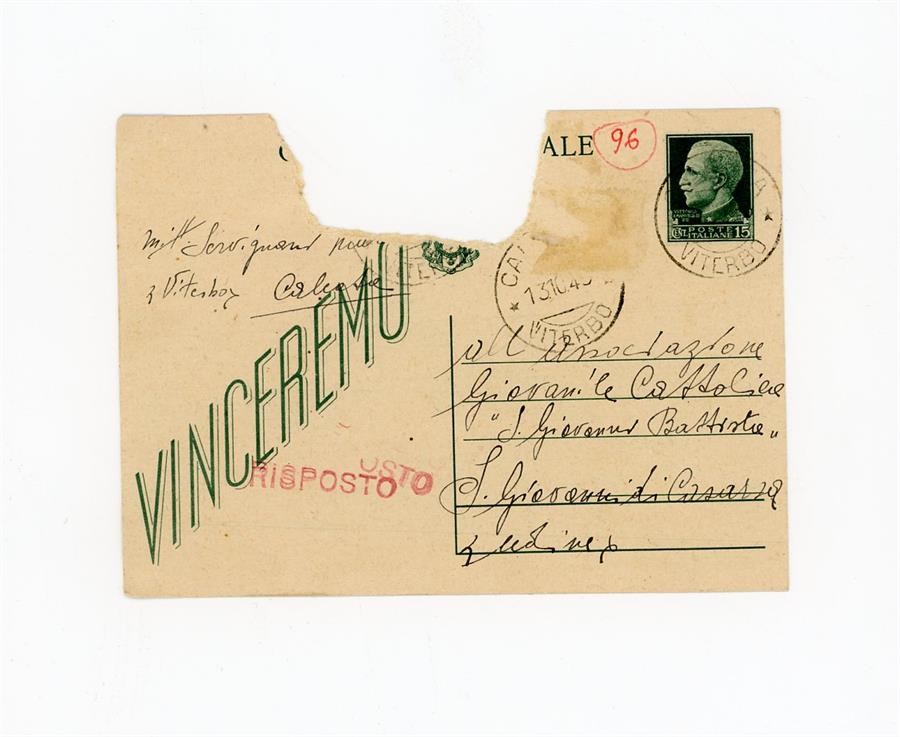 ALE 96
POSTE
ITALIANE
CENT 15
VITERBO
CAL
13.10.4
VITERBO
Mitt. Servignani
(Viterbo) Calcata
VINCEREMO
RISPOSTO
OSTO
all'Associazione
Giovanile Cattolica
"S. Giovanni Battista"
S. Giovanni di Casarsa
(Udine)